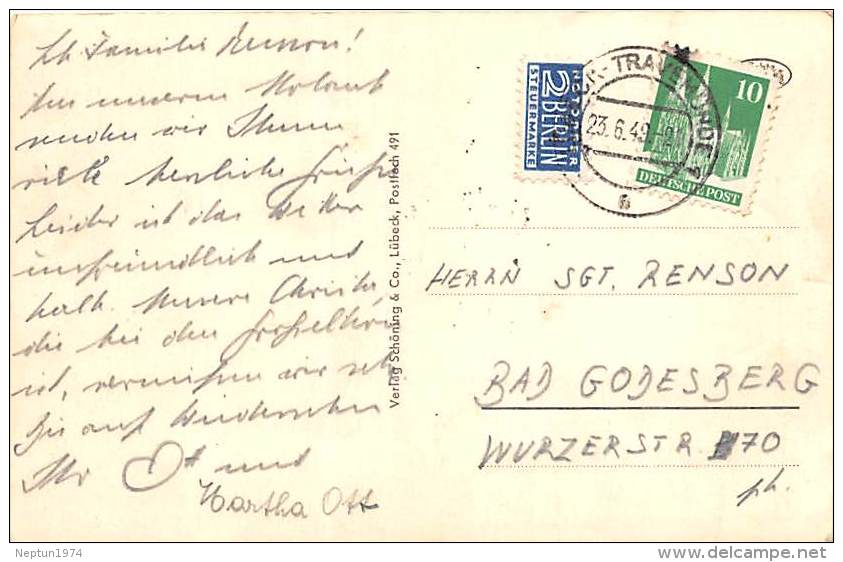 Familie Renson!
Aus unserem Urlaub
senden wir Ihnen
viele herzliche Grüsse
Leider ist das Wetter
unfreundlich und
kalt. Unsere Christa
die bei den Grosseltern
ist, vermissen wir sehr
Bis auf Wiedersehn
Ihr Ott und
Martha Ott
Verlag Schöning & Co., Lübeck, Postfach 491
NOTOPFER
2 BERLIN
STEUERMARKE
LÜBECK-TRAVEMÜNDE 1
23.6.49
b
10
DEUTSCHE POST
HERRN SGT. RENSON
BAD GODESBERG
WURZERSTR. 70
ph.
Neptun1974
www.delcampe.net